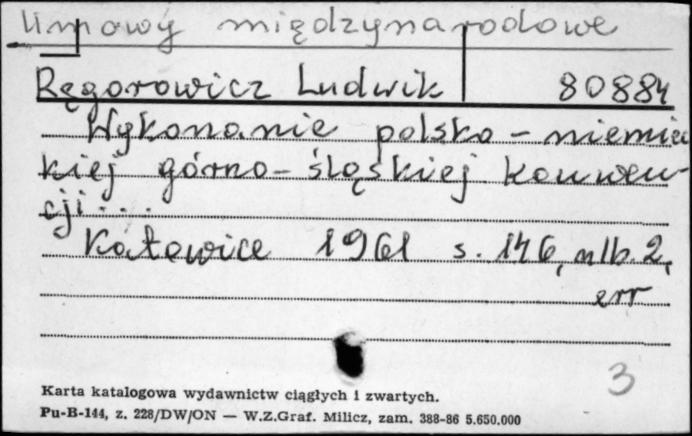 Umowy międzynarodowe
Ręgorowicz Ludwik 80884
Wykonanie polsko-niemiec
kiej górno-śląskiej konwen-
cji...
Katowice 1961 s. 146, nlb. 2,
err
3
Karta katalogowa wydawnictw ciągłych i zwartych.
Pu-B-144, z. 228/DW/ON — W.Z.Graf. Milicz, zam. 388-86 5.650.000